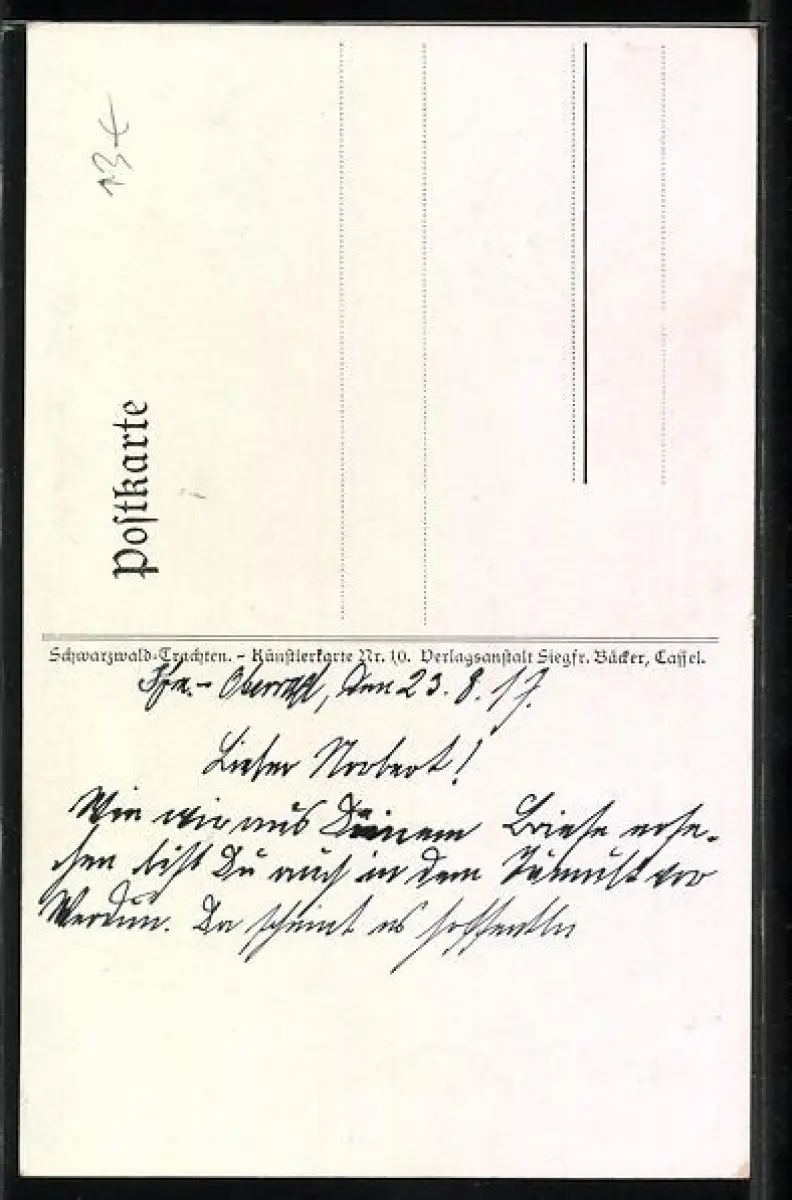 13 €
Postkarte
Schwarzwald-Trachten. - Künstlerkarte Nr. 10. Verlagsanstalt Siegfr. Bäcker, Cassel.
den 23. 8. 17.
Lieber Norbert!
Wie wir aus Deinem Briefe erse-
hen bist Du auch in dem Tumult vor
Werdun. Da scheint es